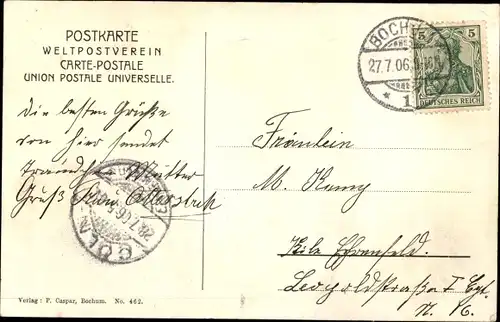 POSTKARTE
WELTPOSTVEREIN
CARTE-POSTALE
UNION POSTALE UNIVERSELLE.
BOCHUM
27.7.06
* 1
5 5
DEUTSCHES REICH
Die besten Grüße
von hier sendet
Mutter
Gruß
CÖLN
28.7.06
Fräulein
M.
Cöln Ehrenfeld.
Leopoldstraße
N. 6.
Verlag: P. Caspar, Bochum. No. 462.